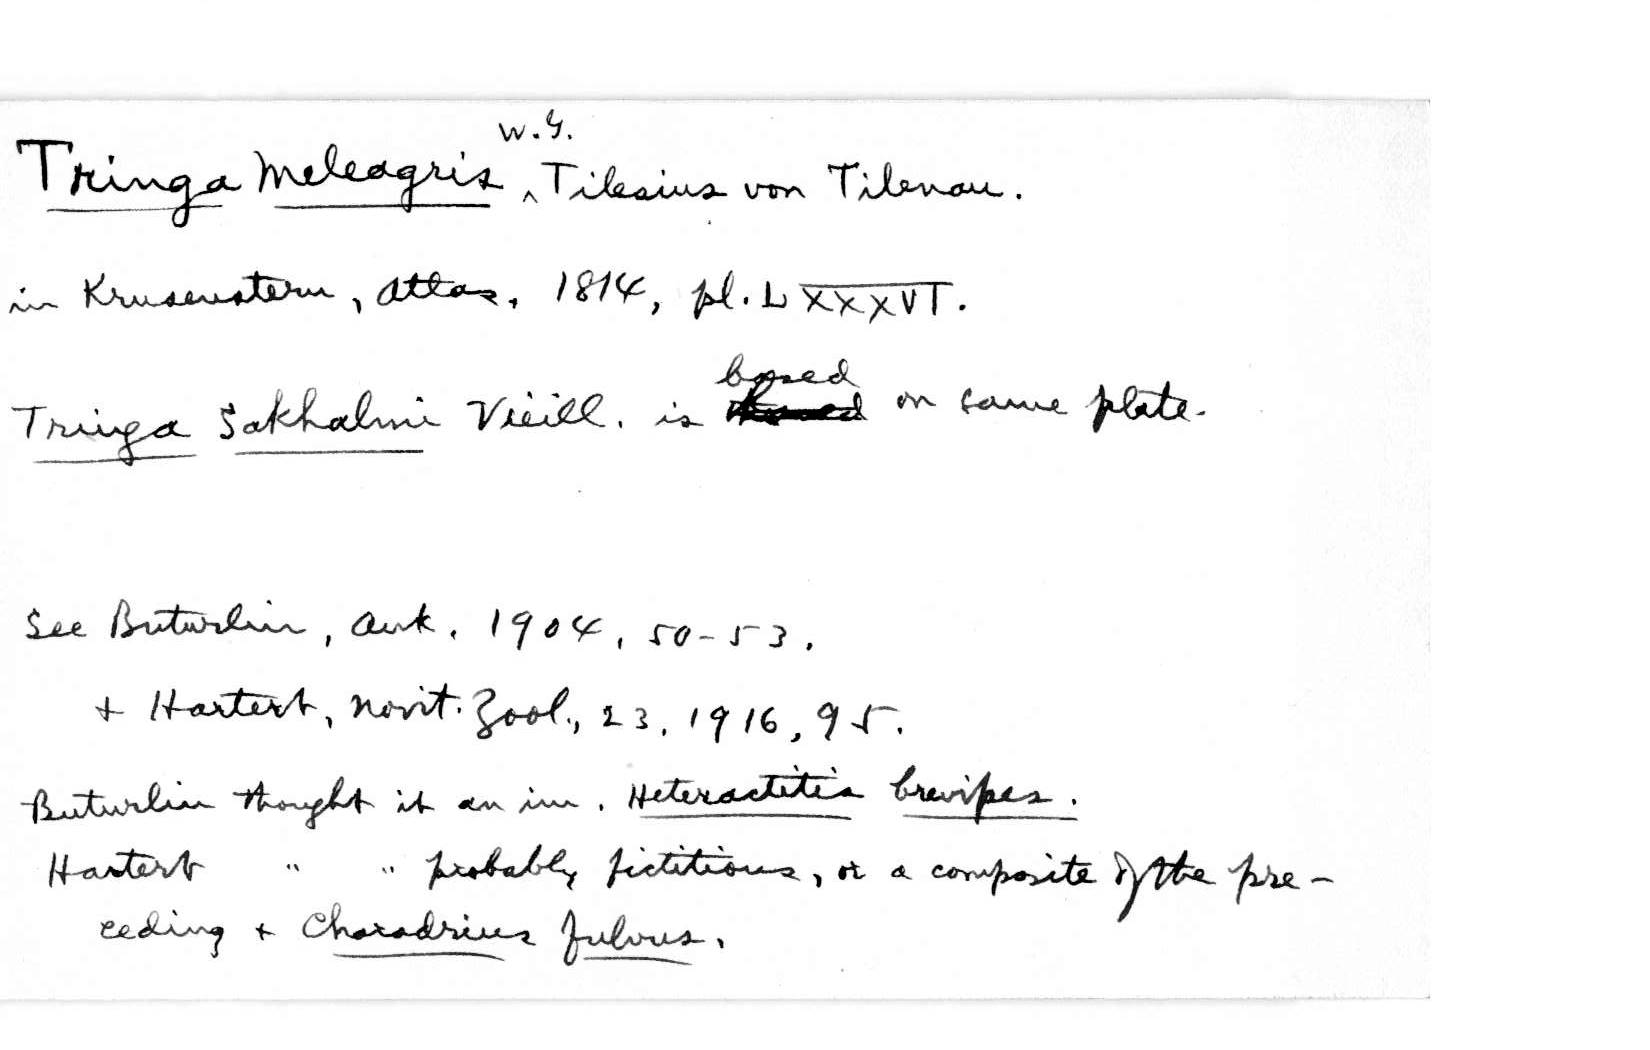 Tringa meleagris W.G. Tilesius von Tilenau.
in Krusenstern, Atlas, 1814, pl. LXXXVI.
Tringa Sakhalini Vieill. is based on same plate.
See Buturlin, Auk. 1904, 50-53.
+ Hartert, Novit. Zool., 23, 1916, 95.
Buturlin thought it an im. Heteractitis brevipes.
Hartert " " probably fictitious, or a composite of the pre-
ceding + Charadrius fulvus.